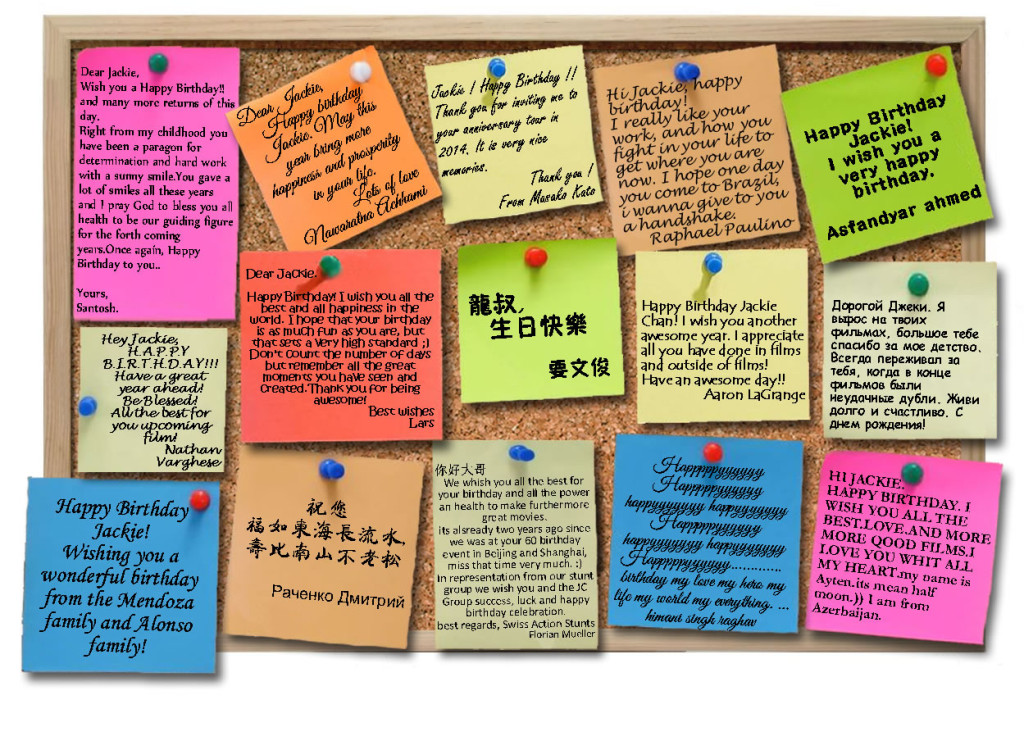 Dear Jackie,
Wish you a Happy Birthday!!
and many more returns of this
day.
Right from my childhood you
have been a paragon for
determination and hard work
with a sunny smile.You gave a
lot of smiles all these years
and I pray God to bless you all
health to be our guiding figure
for the forth coming
years.Once again, Happy
Birthday to you..
Yours,
Santosh.
Dear Jackie,
Happy birthday
Jackie. May this
year bring more
happiness and prosperity
in your life.
Lots of love
Nawaratna Achhami
Jackie ! Happy Birthday !!
Thank you for inviting me to
your anniversary tour in
2014. It is very nice
memories.
Thank you !
From Masako Kato
Hi Jackie, happy
birthday!
I really like your
work, and how you
fight in your life to
get where you are
now. I hope one day
you come to Brazil,
i wanna give to you
a handshake.
Raphael Paulino
Happy Birthday
Jackie!
I wish you a
very happy
birthday.
Asfandyar ahmed
Hey Jackie,
H.A.P.P.Y
B.I.R.T.H.D.A.Y!!!
Have a great
year ahead!
Be Blessed!
All the best for
you upcoming
film!
Nathan
Varghese
Dear Jackie.
Happy Birthday! I wish you all the
best and all happiness in the
world. I hope that your birthday
is as much fun as you are, but
that sets a very high standard ;)
Don't count the number of days
but remember all the great
moments you have seen and
created.Thank you for being
awesome!
Best wishes
Lars
龍叔,
生日快樂
要文俊
Happy Birthday Jackie
Chan! I wish you another
awesome year. I appreciate
all you have done in films
and outside of films!
Have an awesome day!!
Aaron LaGrange
Дорогой Джеки. Я
вырос на твоих
фильмах, большое тебе
спасибо за мое детство.
Всегда переживал за
тебя, когда в конце
фильмов были
неудачные дубли. Живи
долго и счастливо. С
днем рождения!
Happy Birthday
Jackie!
Wishing you a
wonderful birthday
from the Mendoza
family and Alonso
family!
祝您
福如東海長流水,
壽比南山不老松
Раченко Дмитрий
你好大哥
We whish you all the best for
your birthday and all the power
an health to make furthermore
great movies.
its alsready two years ago since
we was at your 60 birthday
event in Beijing and Shanghai,
miss that time very much. :)
in representation from our stunt
group we wish you and the JC
Group success, luck and happy
birthday celebration.
best regards, Swiss Action Stunts
Florian Mueller
Happppyyyyyy
Happppyyyyyyy
happyyyyyyy happyyyyyyy
Happpppyyyyyy
happyyyyyyy happyyyyyyy
Happpppyyyyyy..............
birthday my love my hero my
life my world my everything. ...
himani singh raghav
HI JACKIE.
HAPPY BIRTHDAY. I
WISH YOU ALL THE
BEST.LOVE.AND MORE
MORE QOOD FILMS.I
LOVE YOU WHIT ALL
MY HEART.my name is
Ayten.its mean half
moon.)) I am from
Azerbaijan.